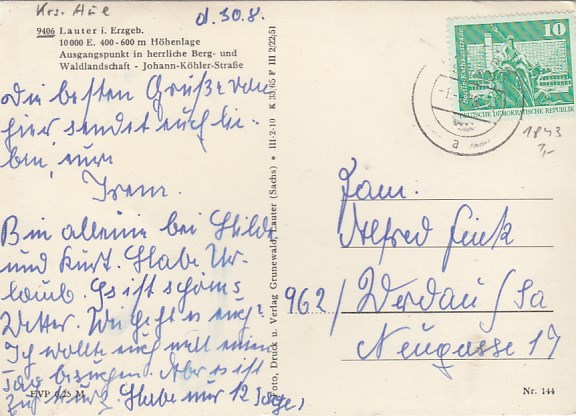 Krs. Aue
d. 30.8.
9406 Lauter i. Erzgeb.
10 000 E. 400-600 m Höhenlage
Ausgangspunkt in herrliche Berg- und
Waldlandschaft - Johann-Köhler-Straße
Die besten Grüße von
hier sendet euch lie-
ben, eure
Irem.
Bin alleine bei Hilde
und Kurt. Habe Ur-
laub. Es ist schöns
Wetter. Wie geht es euch?
Ich wollte euch mall einen
Tag besuchen. Aber es ist
zu kurz. Habe nur 12 Tage,
EVP 0,25 M
Foto, Druck u. Verlag Grunewald, Lauter (Sachs) • III-2-10 K 33/65 F III 2/22/51
10
DEUTSCHE DEMOKRATISCHE REPUBLIK
a
1843
1,-
Fam.
Alfred Fenk
962/ Werdau/Sa
Neugasse 17
Nr. 144